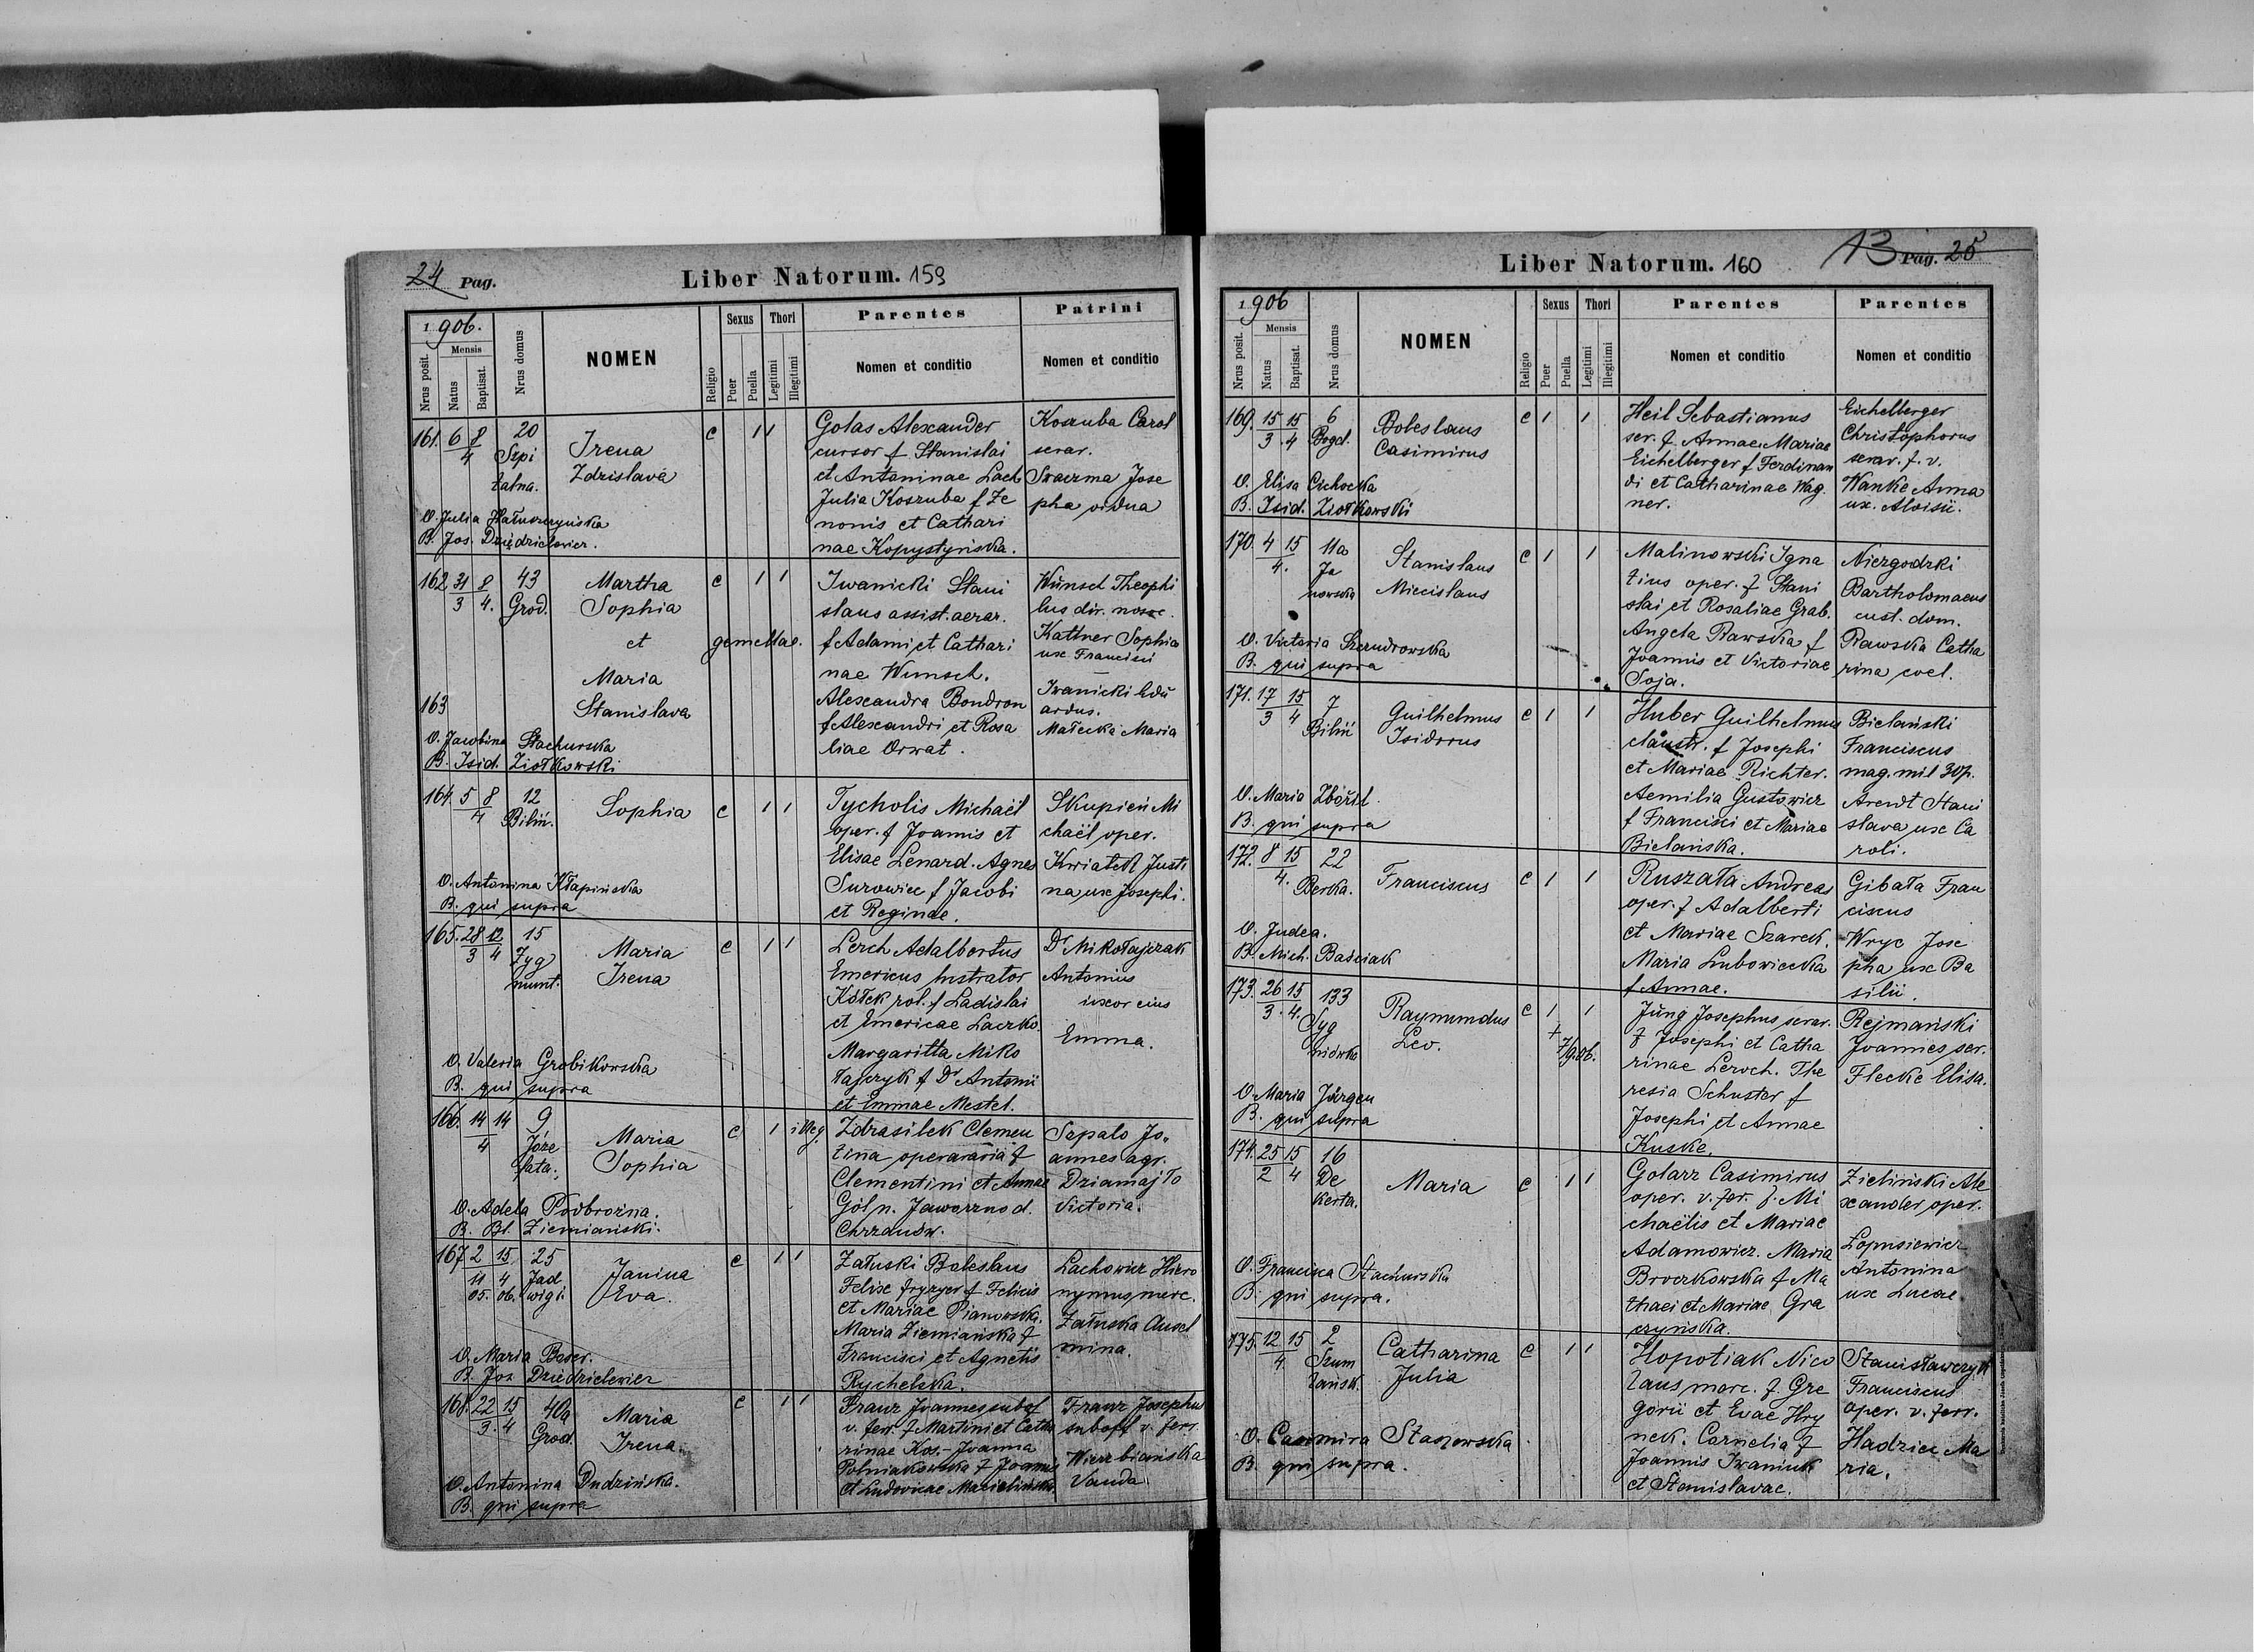 24 Pag.
Liber Natorum. 159
1906.
Nrus posit.
Mensis
Natus
Baptisat.
Nrus domus
NOMEN
Religio
Sexus
Puer
Puella
Thori
Legitimi
Illegitimi
Parentes
Nomen et conditio
Patrini
Nomen et conditio
161. 6 8
4
20
Szpi
talna.
Irena
Zdzislava
c 1 1
Golas Alexander
cursor f Stanislai
et Antoninae Lach
Julia Koszuba f Ze
nonis et Cathari
nae Kopystyńska.
Koszuba Carol
serar.
Swaczma Jose
pha vidua
O. Julia Hałuszczyńska
B. Jos. Dziędzielewicz.
162 31 8
3 4.
43
Grod.
Martha
Sophia
et gemellae.
Maria
Stanislava
163
c 1 1
Iwanicki Stani
slaus assist. aerar.
f Adami et Cathari
nae Wunsch.
Alexandra Bondron
f Alexandri et Rosa
liae Orwat.
Wünsch Theophi
lus dir.
Kattner Sophia
ux. Francisci
Iwanicki Edu
ardus.
Małecka Maria
O. Jacobina Stachurska
B. Isid. Ziołkowski
164. 5 8
4
12
Biliń.
Sophia
c 1 1
Tycholis Michaël
oper. f Joannis et
Elisae Lenard. Agnes
Surowiec f Jacobi
et Reginae.
Skupień Mi
chaël oper.
Kwiatek Justi
na ux Josephi.
O. Antonina Kłapińska
B. qui supra
165. 28 12
3 4
15
Zyg
munt.
Maria
Irena
c 1 1
Lerch Adalbertus
Emericus lustrator
Kółek rol. f Ladislai
et Emericae Laczko.
Margaritta Miko
łajczyk f Dr Antonii
et Emmae Mestel.
Dr Mikołajczak
Antonius
uxor eius
Emma.
O. Valeria Grobikowska
B. qui supra
166. 14 14
4
9
Józe
fata.
Maria
Sophia
c 1 illeg.
Zdrasilek Clemen
tina operararia f
Clementini et Annae
Gól n. Jaworzno d.
Chrzanów.
Sepalo Jo„
annes agr.
Dziamajło
Victoria.
O. Adela Podbrożna.
B. Bl. Ziemiański.
167 2 15
11 4
05. 06.
25
Jad
wigi.
Janina
Eva.
c 1 1
Załuski Boleslaus
Felix fryzyer f Felicis
et Mariae Pianowska.
Maria Ziemiańska f
Francisci et Agnetis
Rychelska.
Lachowicz Hiero
nymus, merc.
Załuska Ansel
mina.
O. Maria Baser.
B. Jos Dziedzielewicz
168. 22 15
3. 4
40a
Grod.
Maria
Irena.
c 1 1
Franz Joannes subof
v. ferr. f Martini et Catha
rinae Kos.- Joanna
Polniakowska f Joannis
et Ludovicae Macielińska.
Franz Josephus
suboff v. ferr
Wierzbiańska
Vanda.
O. Antonina Dudzińska.
B. qui supra
Liber Natorum. 160
13 Pag. 25
1906
Nrus posit.
Mensis
Natus
Baptisat.
Nrus domus
NOMEN
Religio
Sexus
Puer
Puella
Thori
Legitimi
Illegitimi
Parentes
Nomen et conditio
Parentes
Nomen et conditio
169. 15 15
3 . 4
6
Bogd.
Boleslaus
Casimirus
c 1 1
Heil Sebastianus
ser. f. Annae Mariae
Eichelberger f Ferdinan
di et Catharinae Wag.
ner.
Eichelberger
Christophorus
serar. f. v.
Wanke Anna
ux. Aloisii.
O. Elisa Cichocka
B. Isid. Ziołkowski
170. 4 15
4.
11a
Ja
nowska
Stanislaus
Miecislaus
c 1 1
Malinowski Igna
tius oper. f Stani
slai et Rosaliae Grab.
Angela Rawska f
Joannis et Victoriae
Soja.
Niezgodzki
Bartholomaeus
cust. dom.
Rawska Catha
rina coel.
O. Victoria Szendrowska
B. qui supra
171. 17 15
3 4
7
Biliń
Guilhelmus
Isidorus
c 1 1
Huber Guilhelmus
claustr. f Josephi
et Mariae Richter.
Aemilia Gustowicz
f Francisci et Mariae
Bielańska.
Bielański
Franciscus
mag. mil 30p.
Arendt Stani
slava ux Ca
roli.
O. Maria Zbořil.
B. qui supra
172. 8 15
4.
22
Berka.
Franciscus
c 1 1
Ruszała Andreas
oper. f Adalberti
et Mariae Szarek.
Maria Lubowiecka
f Annae.
Gibała Fran
ciscus
Wryc Jose
pha ux Ba
silii.
O. Judea.
B. Mich. Baściak
173. 26 15
3 . 4.
133
Syg
niówka
Raymundus
Leo.
c 1 1
+
7/9.06.
Jüng Josephus serar.
f Josephi et Catha
rinae Leroch. The
resia Schuster f
Josephi et Annae
Kuske.
Rejmański
Joannes ser.
Flecke Elisa.
O. Maria Jürgen
B. qui supra
174. 25 15
2 4
16
De
kerta.
Maria
c 1 1
Golarz Casimirus
oper. v. fer. f. Mi
chaëlis et Mariae
Adamowicz. Maria
Broczkowska f Ma
thaei et Mariae Gra
czyńska.
Zieliński Ale
xander oper.
Łopusiewicz
Antonina
ux Lucae.
O. Francisca Stachurska
B. qui supra.
175. 12 15
4.
2
Szum
lańsk.
Catharina
Julia
c 1 1
Hopotiak Nico
laus merc. f. Gre
gorii et Evae Hry
nek. Cornelia f
Joannis Iwaniuk
et Stanislavae.
Stanisławczyk
Franciscus
oper. v. ferr.
Hadzicz Ma
ria.
O. Casimira Staszowska
B. qui supra.